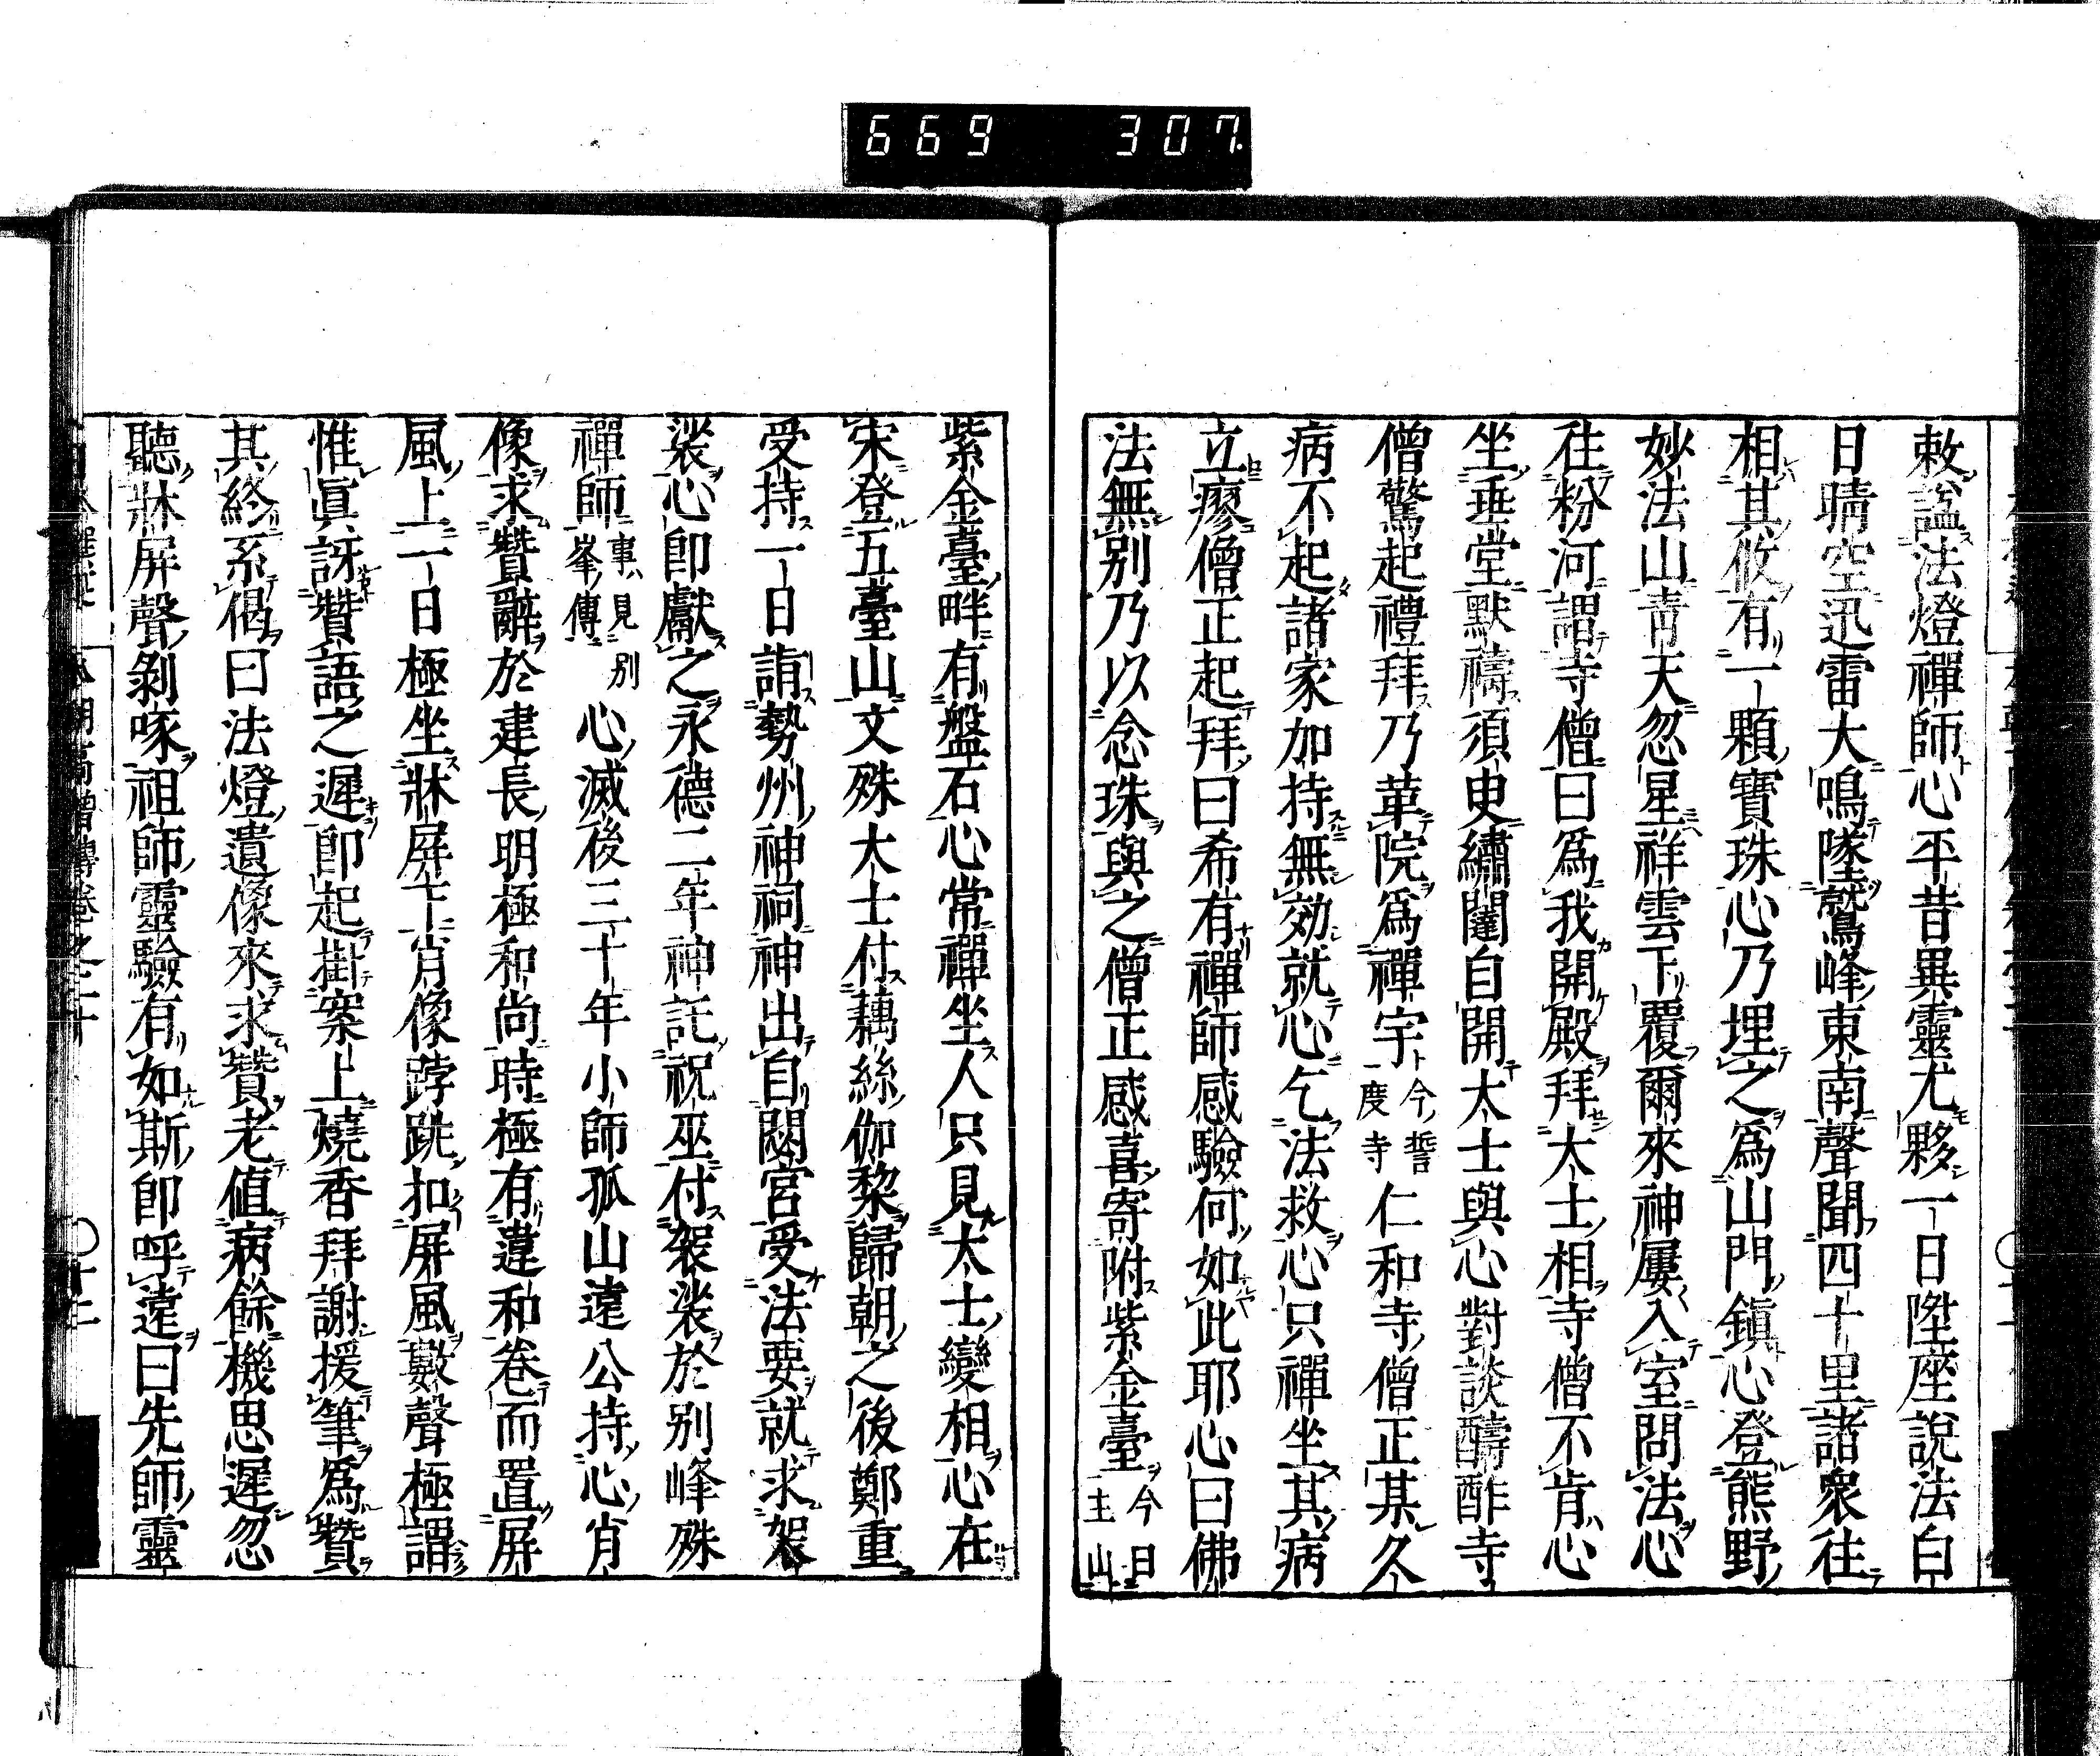 669 307
敕謚法燈禪師心平昔異靈尤夥一日陞座說法白
日晴空迅雷大鳴隊鷲峰東南聲聞四十里諸衆往
相其攸有一顆寶珠心乃埋之爲山門鎭心登熊野
妙法山青天忽星祥雲下覆爾來神屢入室問法心
往粉河謂寺僧曰爲我開殿拜大士相寺僧不肯心
坐垂堂默禱須臾繡闥自開大士與心對談醻酢寺
僧驚起禮拜乃革院爲禪宇今誓度寺仁和寺僧正某久
病不起諸家加持無効就心乞法救心只禪坐其病
立瘳僧正起拜曰希有禪師感驗何如此耶心曰佛
法無別乃以念珠與之僧正感喜寄附紫金臺今日主山
紫金臺畔有盤石心常禪坐人只見大士變相心在
宋登五臺山文殊大士付藕絲伽黎歸朝之後鄭重
受持一日詣勢州神祠神出自閟宮受法要就求袈
裟心卽獻之永德二年神託祝巫付袈裟於別峰殊
禪師事見別峯傳心滅後三十年小師孤山遠公持心肖
像求贊辭於建長明極和尚時極有違和卷而置屏
風上一日極坐牀屏下肖像踍跳扣屏風數聲極謂
惟眞訝贊語之遲卽起掛案上燒香拜謝援筆爲贊
其終系偈曰法燈遺像來求贊老値病餘機思遲忽
聽牀屏聲剝啄祖師靈驗有如斯卽呼遠曰先師靈